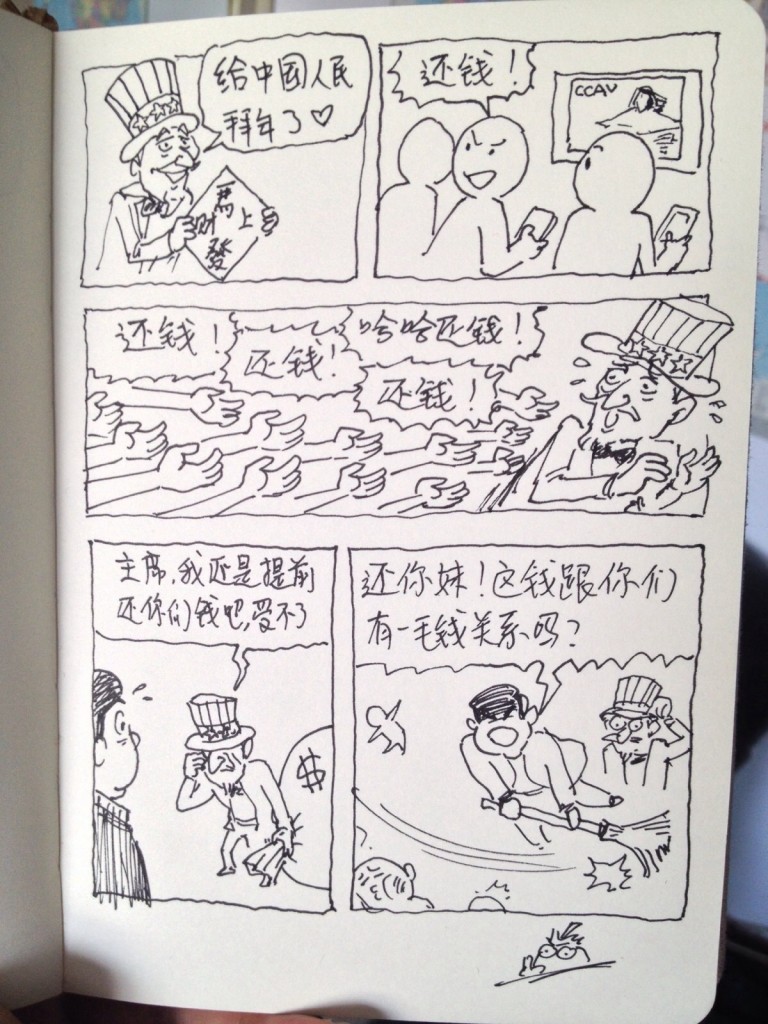 给中国人民
拜年了♡
馬
上
发
财
还钱！
CCAV
还钱！
还钱！
哈哈还钱！
还钱！
主席，我还是提前
还你们钱吧，受不了
$
还你妹！这钱跟你们
有一毛钱关系吗？